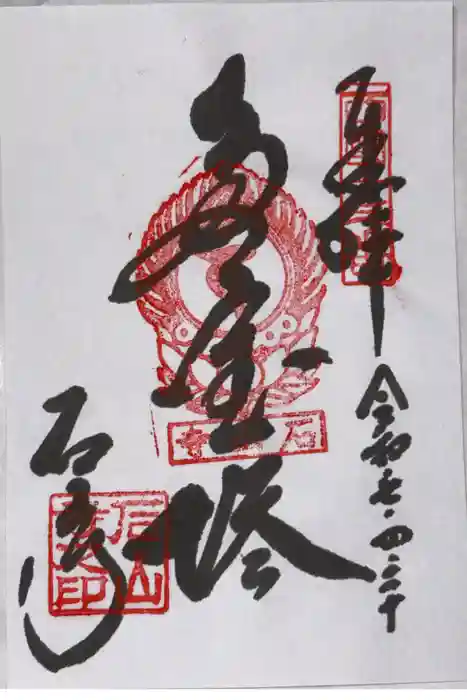 奉拝
令和七・四・
多宝塔
石山寺
石山寺
石山
寺之印